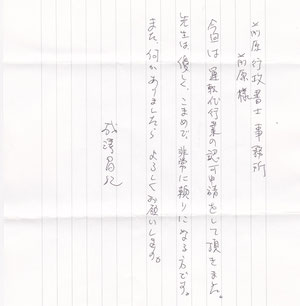 前原行政書士事務所
前原様
今回は運転代行業の認可申請をして頂きました。
先生は優しく、こまめで非常に頼りになる方です。
また何かありましたら よろしくお願いします。
成澤昌記